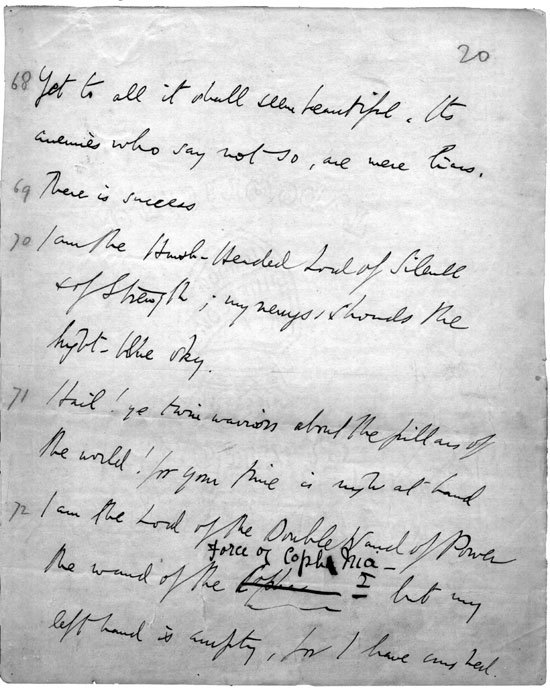 20
68 Yet to all it shall seem beautiful. Its
enemies who say not so, are mere liars.
69 There is success
70 I am the Hawk-Headed Lord of Silence
& of Strength; my nemyss shrouds the
night-blue sky.
71 Hail! ye twin warriors about the pillars of
the world! for your time is nigh at hand
72 I am the Lord of the Double Wand of Power
Force of Coph Nia –
the wand of the I but my
left hand is empty, for I have crushed